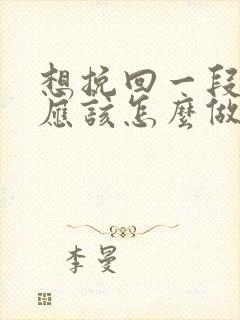 想挽回一段
應該怎麼做
李曼